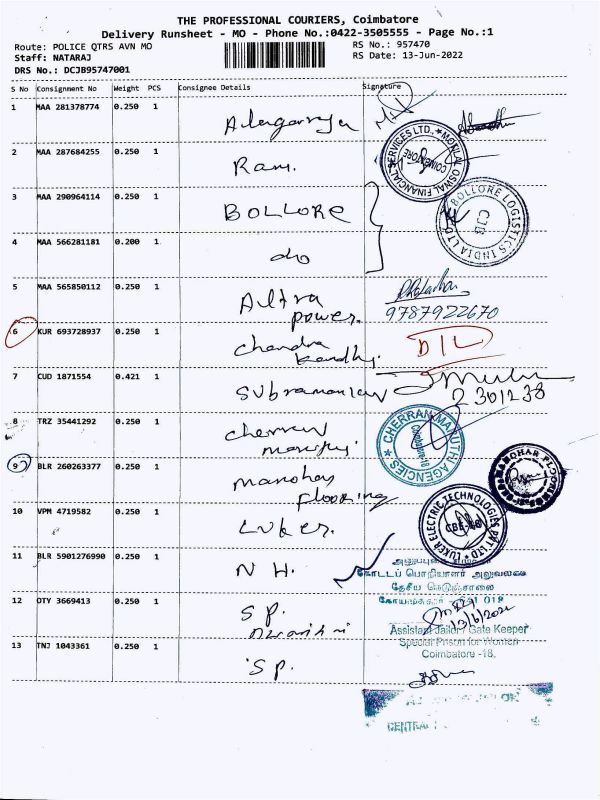 THE PROFESSIONAL COURIERS, Coimbatore
Delivery Runsheet - MO - Phone No.:0422-3505555 - Page No.:1
Route: POLICE QTRS AVN MO
RS No.: 957470
Staff: NATARAJ
RS Date: 13-Jun-2022
DRS No.: DCJB95747001
S No Consignment No Weight PCS Consignee Details Signature
1 MAA 281378774 0.250 1 Alagarraja
2 MAA 287684255 0.250 1 Ram.
MOTILAL OSWAL FINANCIAL SERVICES LTD. COIMBATORE
3 MAA 290964114 0.250 1 BOLLORE
BOLLORE LOGISTICS INDIA LTD CJB
4 MAA 566281181 0.200 1 do
5 MAA 565850112 0.250 1 Altra power.
9787922670
6 KUR 693728937 0.250 1 Chandra Kandhi.
D/L
7 CUD 1871554 0.421 1 Subramanian
2301238
8 TRZ 35441292 0.250 1 cherran
CHERRAN MARUTHI AGENCIES Coimbatore-18
9 BLR 260263377 0.250 1 manohar flooring
MANOHAR FLOORING
10 VPM 4719582 0.250 1 Luker.
LUKER ELECTRIC TECHNOLOGIES PVT LTD CBE-18
11 BLR 5901276990 0.250 1 N H.
கோட்டப் பொறியாளர் அலுவலகம்
தேசிய நெடுஞ்சாலை
12 OTY 3669413 0.250 1 S P.
13/6/2022
Assistant Jailor / Gate Keeper
Special Prison for Women
Coimbatore -18.
13 TNJ 1043361 0.250 1 S P.
CENTRAL